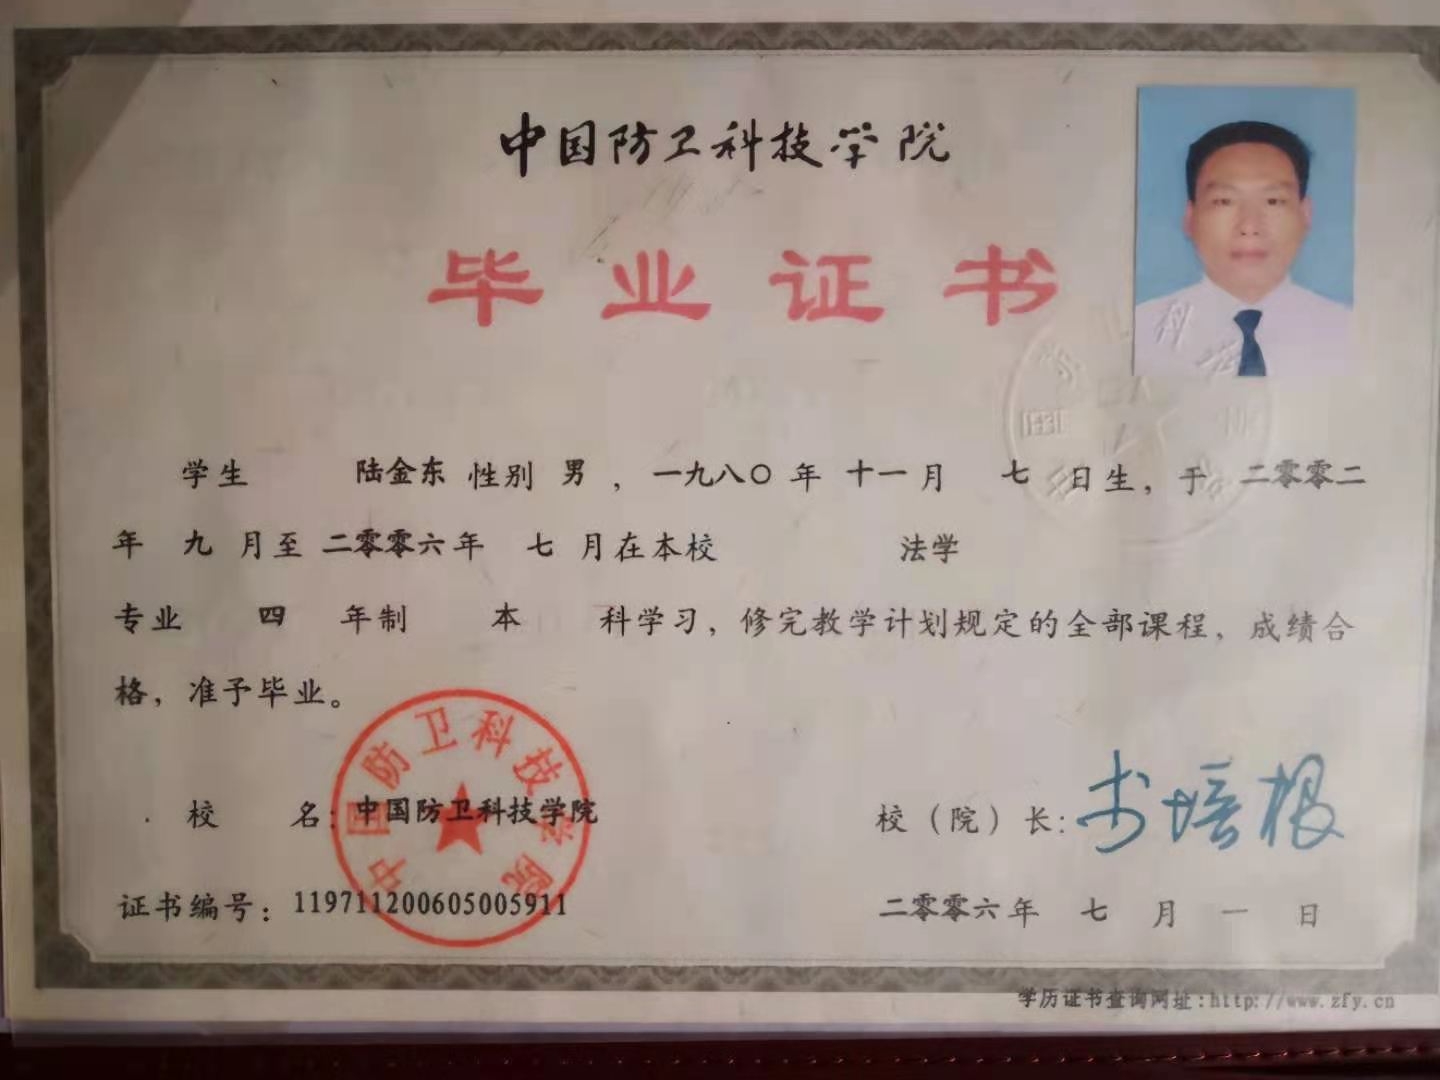 中国防卫科技学院
毕业证书
学生 陆金东 性别 男 ，一九八〇 年 十一 月 七 日生，于 二零零二
年 九 月至 二零零六 年 七 月在本校 法学
专业 四 年制 本 科学习，修完教学计划规定的全部课程，成绩合
格，准予毕业。
中国防卫科技学院
校 名：中国防卫科技学院
校（院）长：
培根
证书编号：119711200605005911
二零零六 年 七 月 一 日
学历证书查询网址：http://www.zfy.cn